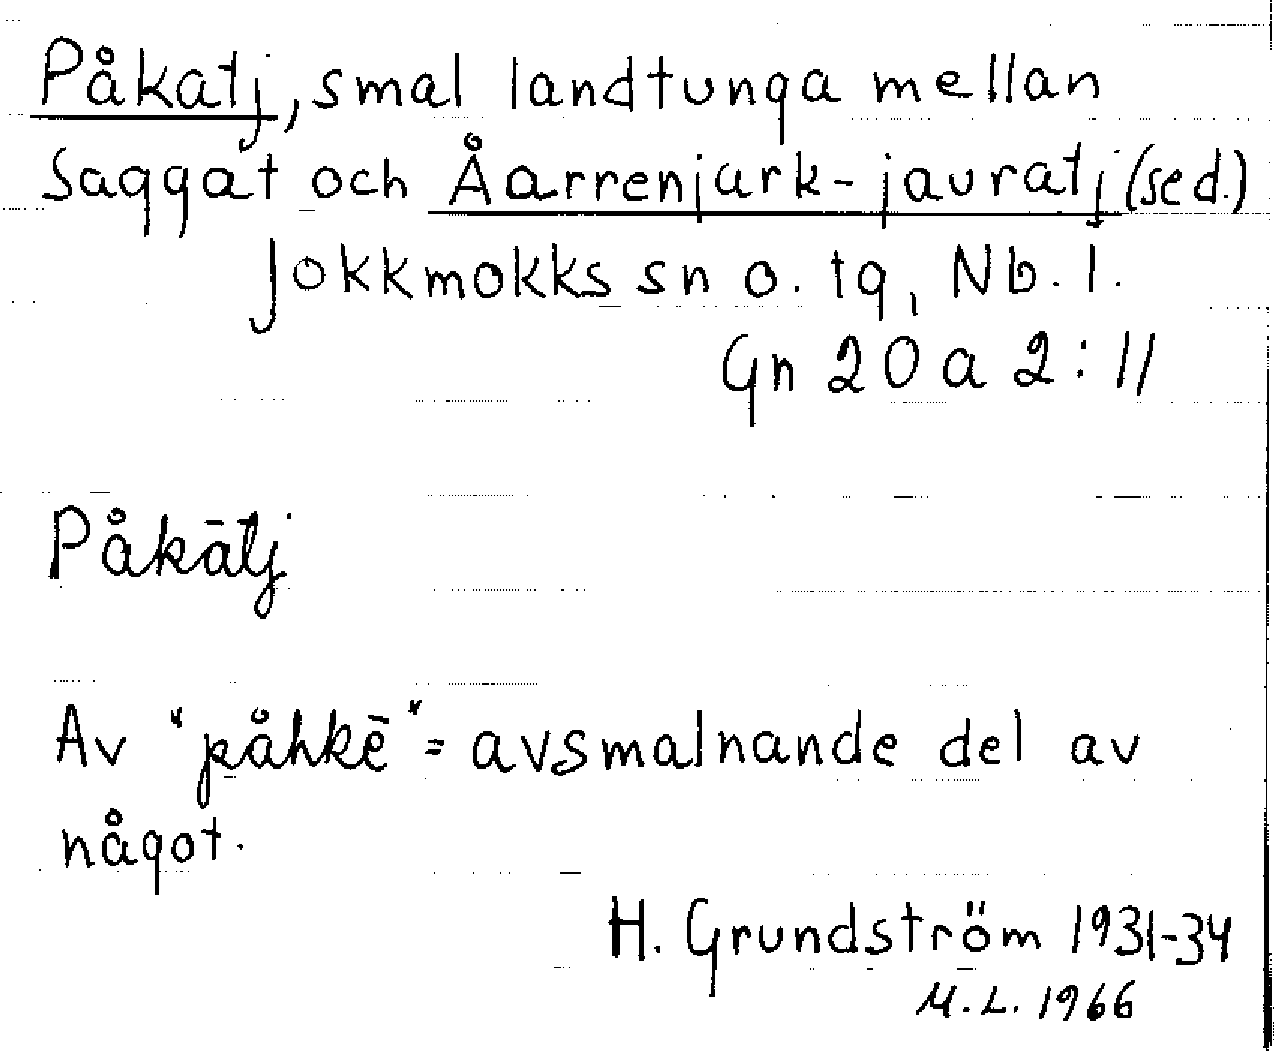 Påkatj, smal landtunga mellan
Saggat och Åarrenjark-jauratj (sed.)
Jokkmokks sn o. tg, Nb. l.
Gn 20 a 2:11
Påkātj
Av "påhkē" = avsmalnande del av
något.
H. Grundström 1931-34
M.L. 1966